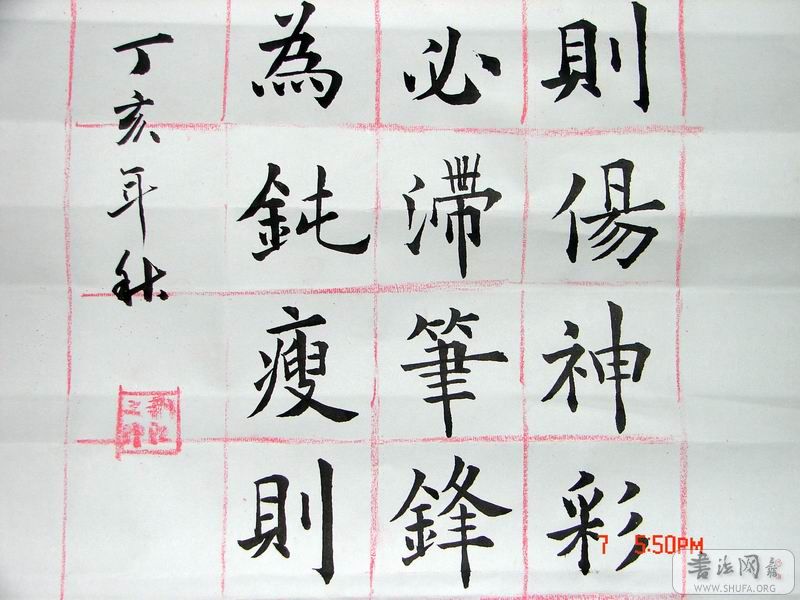 則傷神彩
必滯筆鋒
為鈍瘦則
丁亥年秋
7 5:50PM
书法网
WWW.SHUFA.ORG